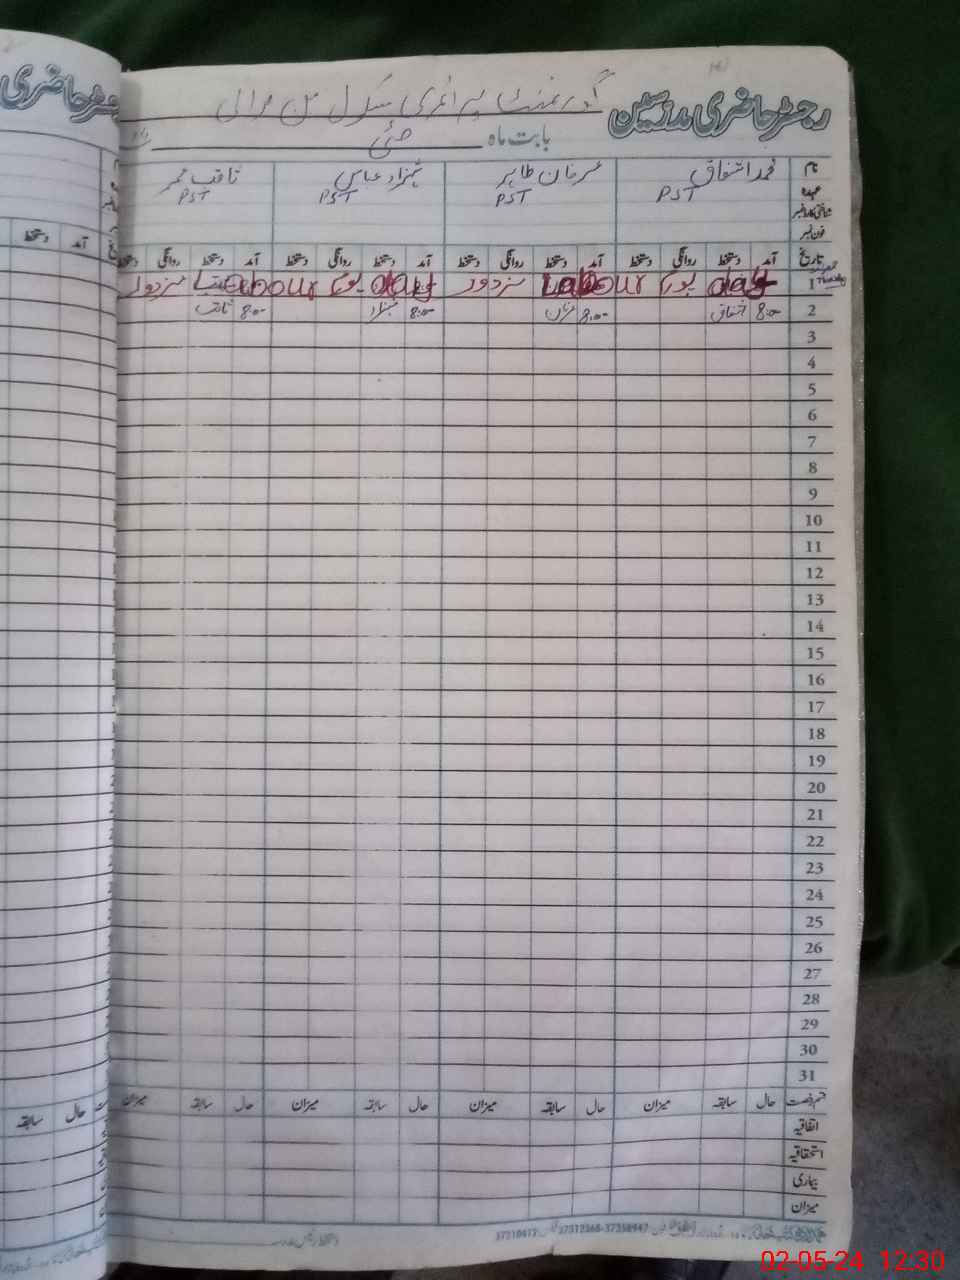 رجسٹر حاضری مدرسین گورنمنٹ پرائمری سکول
بابت ماہ مئی
نام محمد اشفاق عرفان طاہر شہزاد عباس ثاقب عمر
عہدہ PST PST PST PST
شناختی کارڈ نمبر
فون نمبر
تاریخ آمد دستخط روانگی دستخط آمد دستخط روانگی دستخط آمد دستخط روانگی دستخط آمد دستخط روانگی دستخط
1 Labour day یوم مزدور Labour day یوم مزدور
2 8:00 اشفاق 8:00 عرفان 8:00 شہزاد 8:00 ثاقب
3
4
5
6
7
8
9
10
11
12
13
14
15
16
17
18
19
20
21
22
23
24
25
26
27
28
29
30
31
قسم رخصت حال سابقہ میزان حال سابقہ میزان حال سابقہ میزان حال سابقہ میزان
اتفاقیہ
استحقاقیہ
بیماری
میزان
02-05-24 12:30